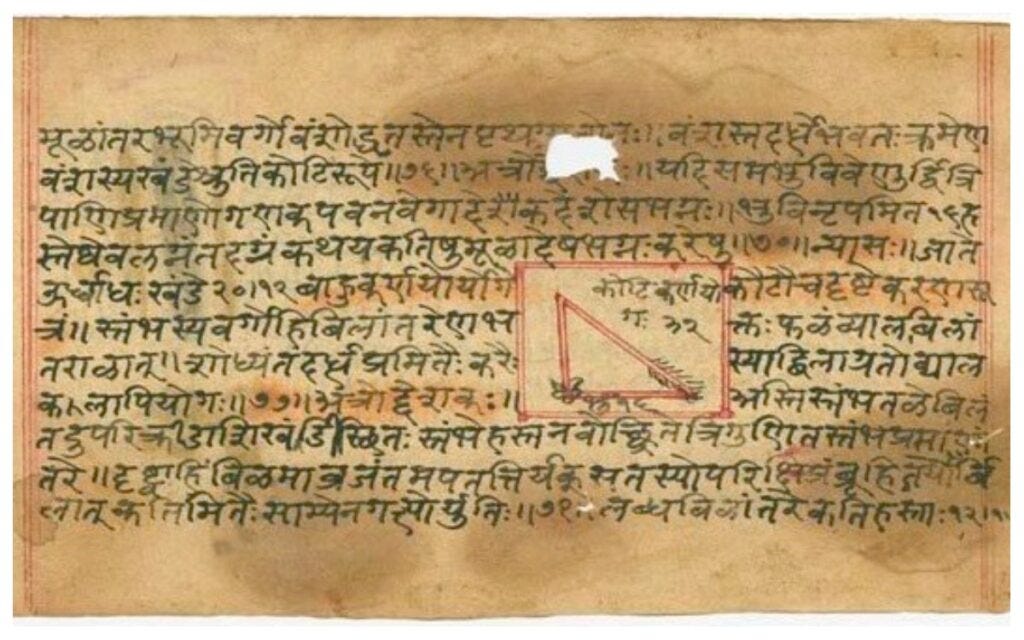 मूळांतरभूमिवर्गो वंशोद्धृतस्तेन पृथग वंशस्तदर्धेभवतः क्रमेण
वंशस्यखंडेश्रुतिकोटिरूपे॥७६॥ ॥यदिसमभुविवेणुर्द्वित्रि
पाणिप्रमाणोगणकपवनवेगादेशेकदेशेसभग्नः॥भुविनृपमित१६ह
स्तेष्वेवलग्नंतदग्रंकथयकतिषुमूळादेषभग्नःकरेषु॥७०॥न्यासः॥जाते
ऊर्ध्वाधःखंडे२०।१२बाहुकर्णयोर्योगे कोटिकर्णयो कोटौचदृष्टेकरणसू
त्रं॥स्तंभस्यवर्गोहिबिलांतरेणभ गः ३२ क्तः फळंव्यालबिलां
तराळात्॥शोध्यंतदर्धप्रमितैःकरैः स्याद्बिलाग्रतोव्याल
कलापियोगः॥७७॥अत्रोद्देशकः॥ अस्तिस्तंभतळेबिलं
तदुपरिक्रीडाशिखंडीस्थितः स्तंभेहस्तनवोच्छ्रितेत्रिगुणितस्तंभप्रमाणां
तरे॥दृष्ट्वाहिंबिळमाव्रजंतमपतत्तिर्यक्सतस्योपरिक्षिप्रंब्रूहितयोर्बि
लात्कतिमितैःसाम्येनगत्योर्युतिः॥७१॥लब्धबिळांतरेकतिहस्ताः१२।